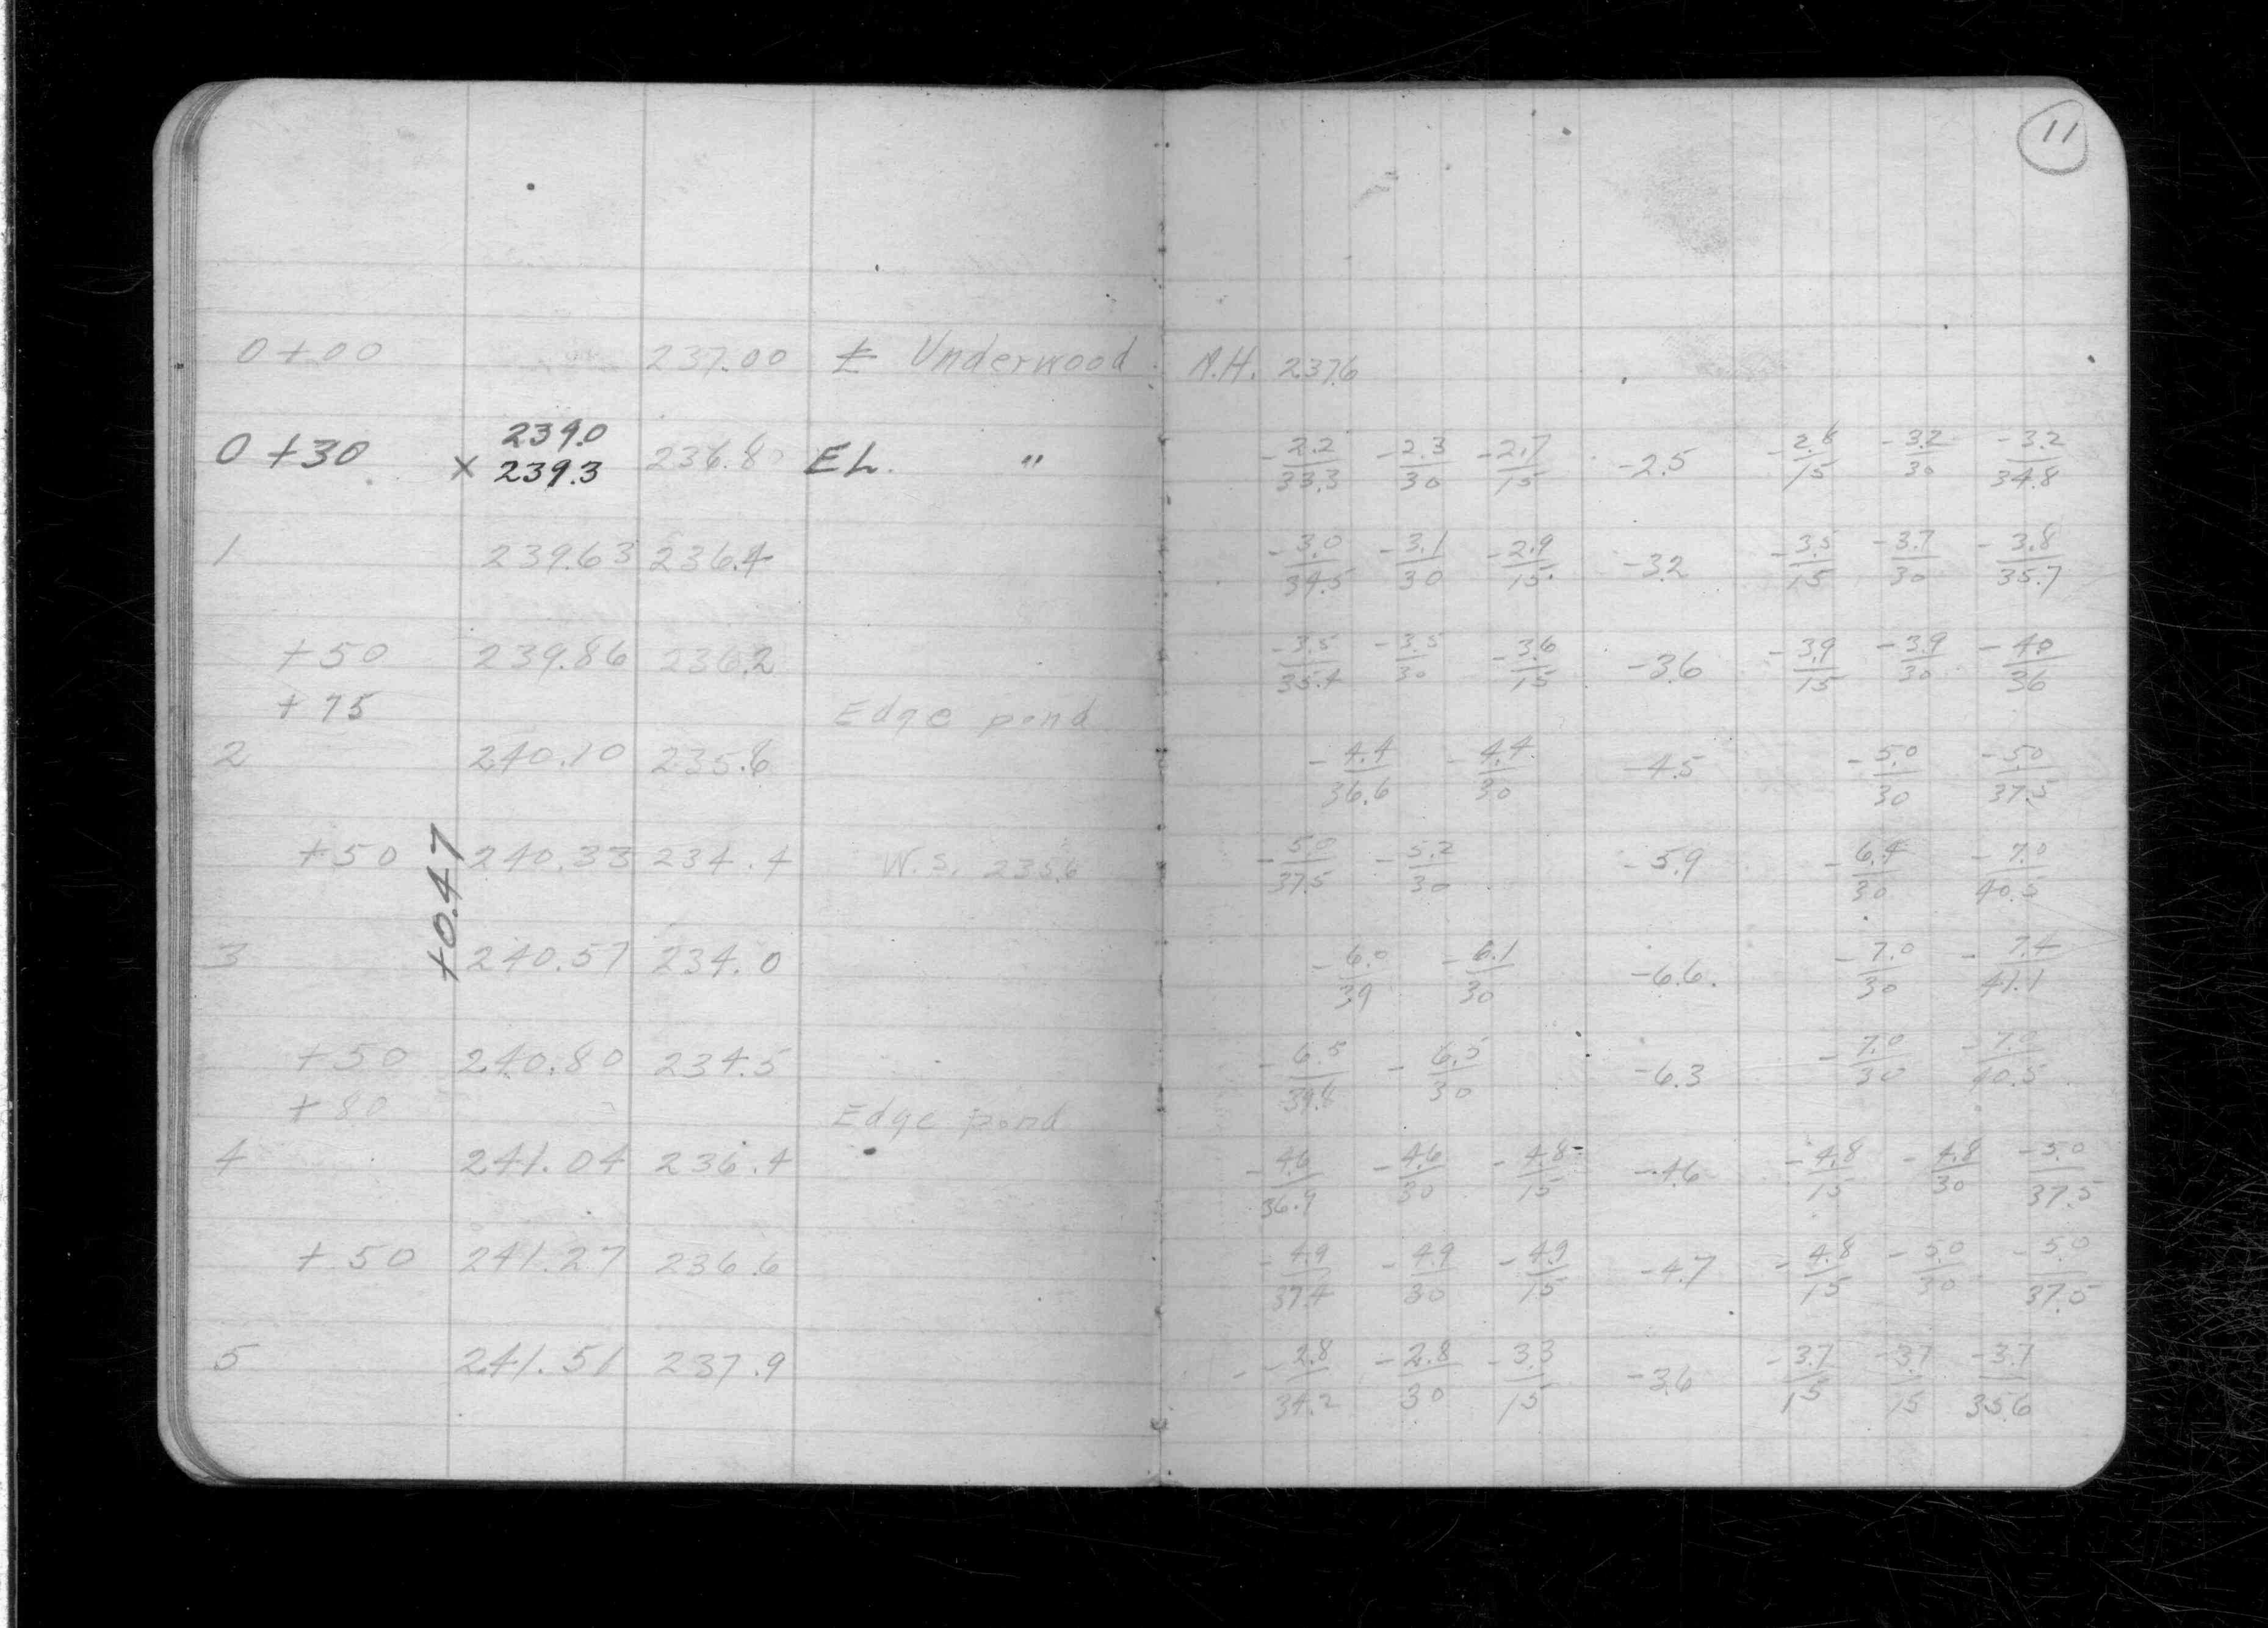 11
0+00 237.00 ₤ Underwood M.H. 237.6
239.0
0+30 x 239.3 236.80 EL. " -2.2/33.3 -2.3/30 -2.7/15 -2.5 -2.8/15 -3.2/30 -3.2/34.8
1 239.63 236.4 -3.0/34.5 -3.1/30 -2.9/15 -3.2 -3.5/15 -3.7/30 -3.8/35.7
+50 239.86 236.2 -3.5/35.4 -3.5/30 -3.6/15 -3.6 -3.9/15 -3.9/30 -4.0/36
+75 Edge pond
2 240.10 235.6 -4.4/36.6 -4.4/30 -4.5 -5.0/30 -5.0/37.5
+50 240.33 234.4 W.S. 235.6 -5.0/37.5 -5.2/30 -5.9 -6.4/30 -7.0/40.5
+0.47
3 240.57 234.0 -6.0/39 -6.1/30 -6.6. -7.0/30 -7.4/41.1
+50 240.80 234.5 -6.5/39.8 -6.5/30 -6.3 -7.0/30 -7.0/40.5
+80 Edge pond
4 241.04 236.4 -4.6/36.9 -4.6/30 -4.8/15 -4.6 -4.8/15 -4.8/30 -5.0/37.5
+50 241.27 236.6 -4.9/37.4 -4.9/30 -4.9/15 -4.7 -4.8/15 -5.0/30 -5.0/37.5
5 241.51 237.9 -2.8/34.2 -2.8/30 -3.3/15 -3.6 -3.7/15 -3.7/15 -3.7/35.6